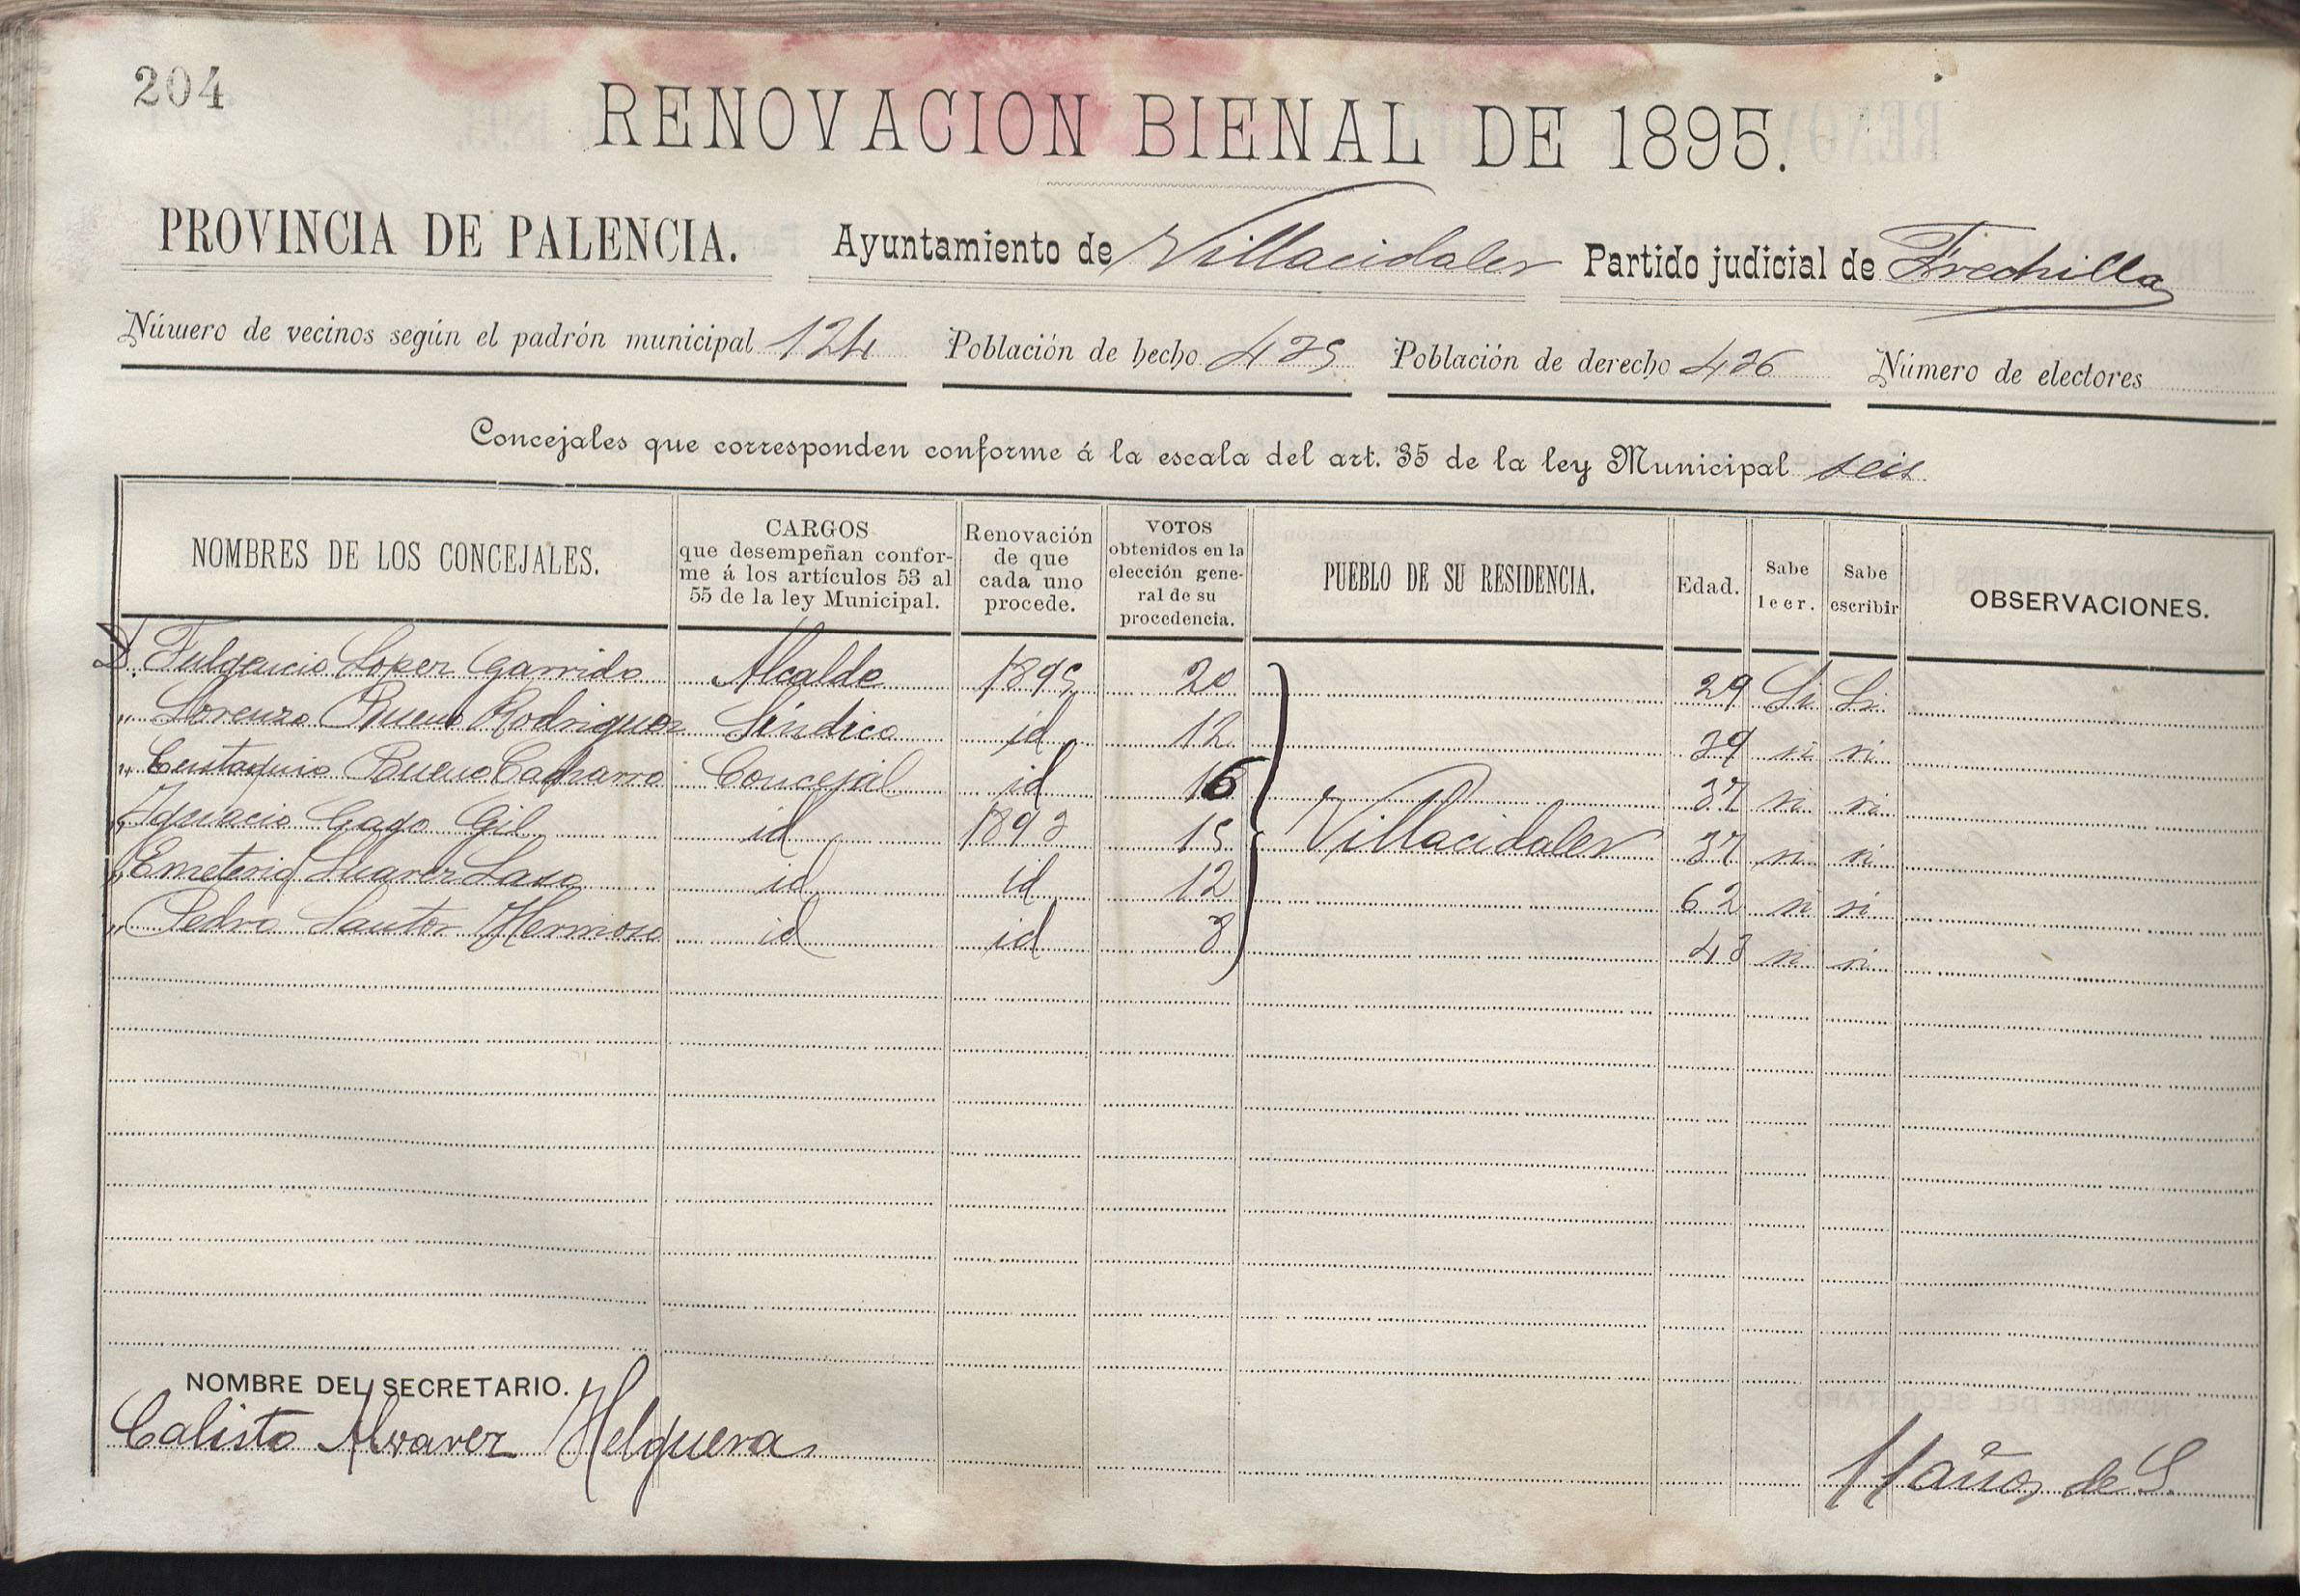 204
RENOVACION BIENAL DE 1895.
PROVINCIA DE PALENCIA. Ayuntamiento de Villacidaler Partido judicial de Frechilla
Número de vecinos según el padrón municipal 124 Población de hecho 425 Población de derecho 426 Número de electores
Concejales que corresponden conforme á la escala del art. 35 de la ley Municipal seis
NOMBRES DE LOS CONCEJALES. CARGOS que desempeñan conforme á los artículos 53 al 55 de la ley Municipal. Renovación de que cada uno procede. VOTOS obtenidos en la elección general de su procedencia. PUEBLO DE SU RESIDENCIA. Edad. Sabe leer. Sabe escribir OBSERVACIONES.
D. Fulgencio Lopez Garrido Alcalde 1895 20 29 Si Si
" Lorenzo Bueno Rodriguez Síndico id 12 39 si si
" Eustaquio Bueno Cacharro Concejal id 16 37 si si
" Ignacio Gago Gil id 1893 15 Villacidaler 37 si si
" Emeterio Suarez Laso id id 12 62 si si
" Pedro Santos Hermoso id id 8 48 si si
NOMBRE DEL SECRETARIO.
Calisto Alvarez Helguera 11 años de S.